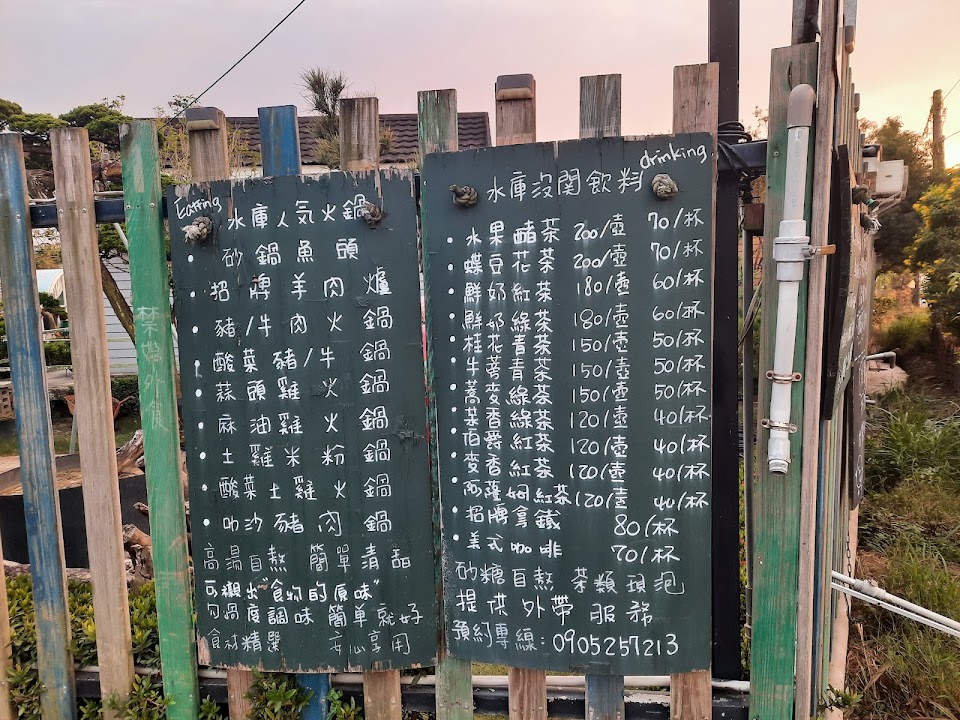 Eatting
水庫人気火鍋
• 砂鍋魚頭
• 招牌羊肉爐
• 豬/牛肉火鍋
• 酸菜豬/牛鍋
• 蒜頭雞火鍋
• 麻油雞火鍋
• 土雞米粉鍋
• 酸菜土雞火鍋
• 叻沙豬肉鍋
高湯自熬 簡單清甜
可襯出"食物的原味"
勿過度調味 簡單就好
食材精選 安心享用
禁帶外食
drinking
水庫沒関飲料
• 水果醋茶 200/壺 70/杯
• 蝶豆花茶 200/壺 70/杯
• 鮮奶紅茶 180/壺 60/杯
• 鮮奶綠茶 180/壺 60/杯
• 桂花青茶 150/壺 50/杯
• 牛蒡青茶 150/壺 50/杯
• 蕎麥綠茶 150/壺 50/杯
• 茉香綠茶 120/壺 40/杯
• 伯爵紅茶 120/壺 40/杯
• 麥香紅茶 120/壺 40/杯
• 阿薩姆紅茶 120/壺 40/杯
• 招牌拿鐵 80/杯
• 美式咖啡 70/杯
砂糖自熬 茶類現泡
提供外帶服務
預約專線:0905257213